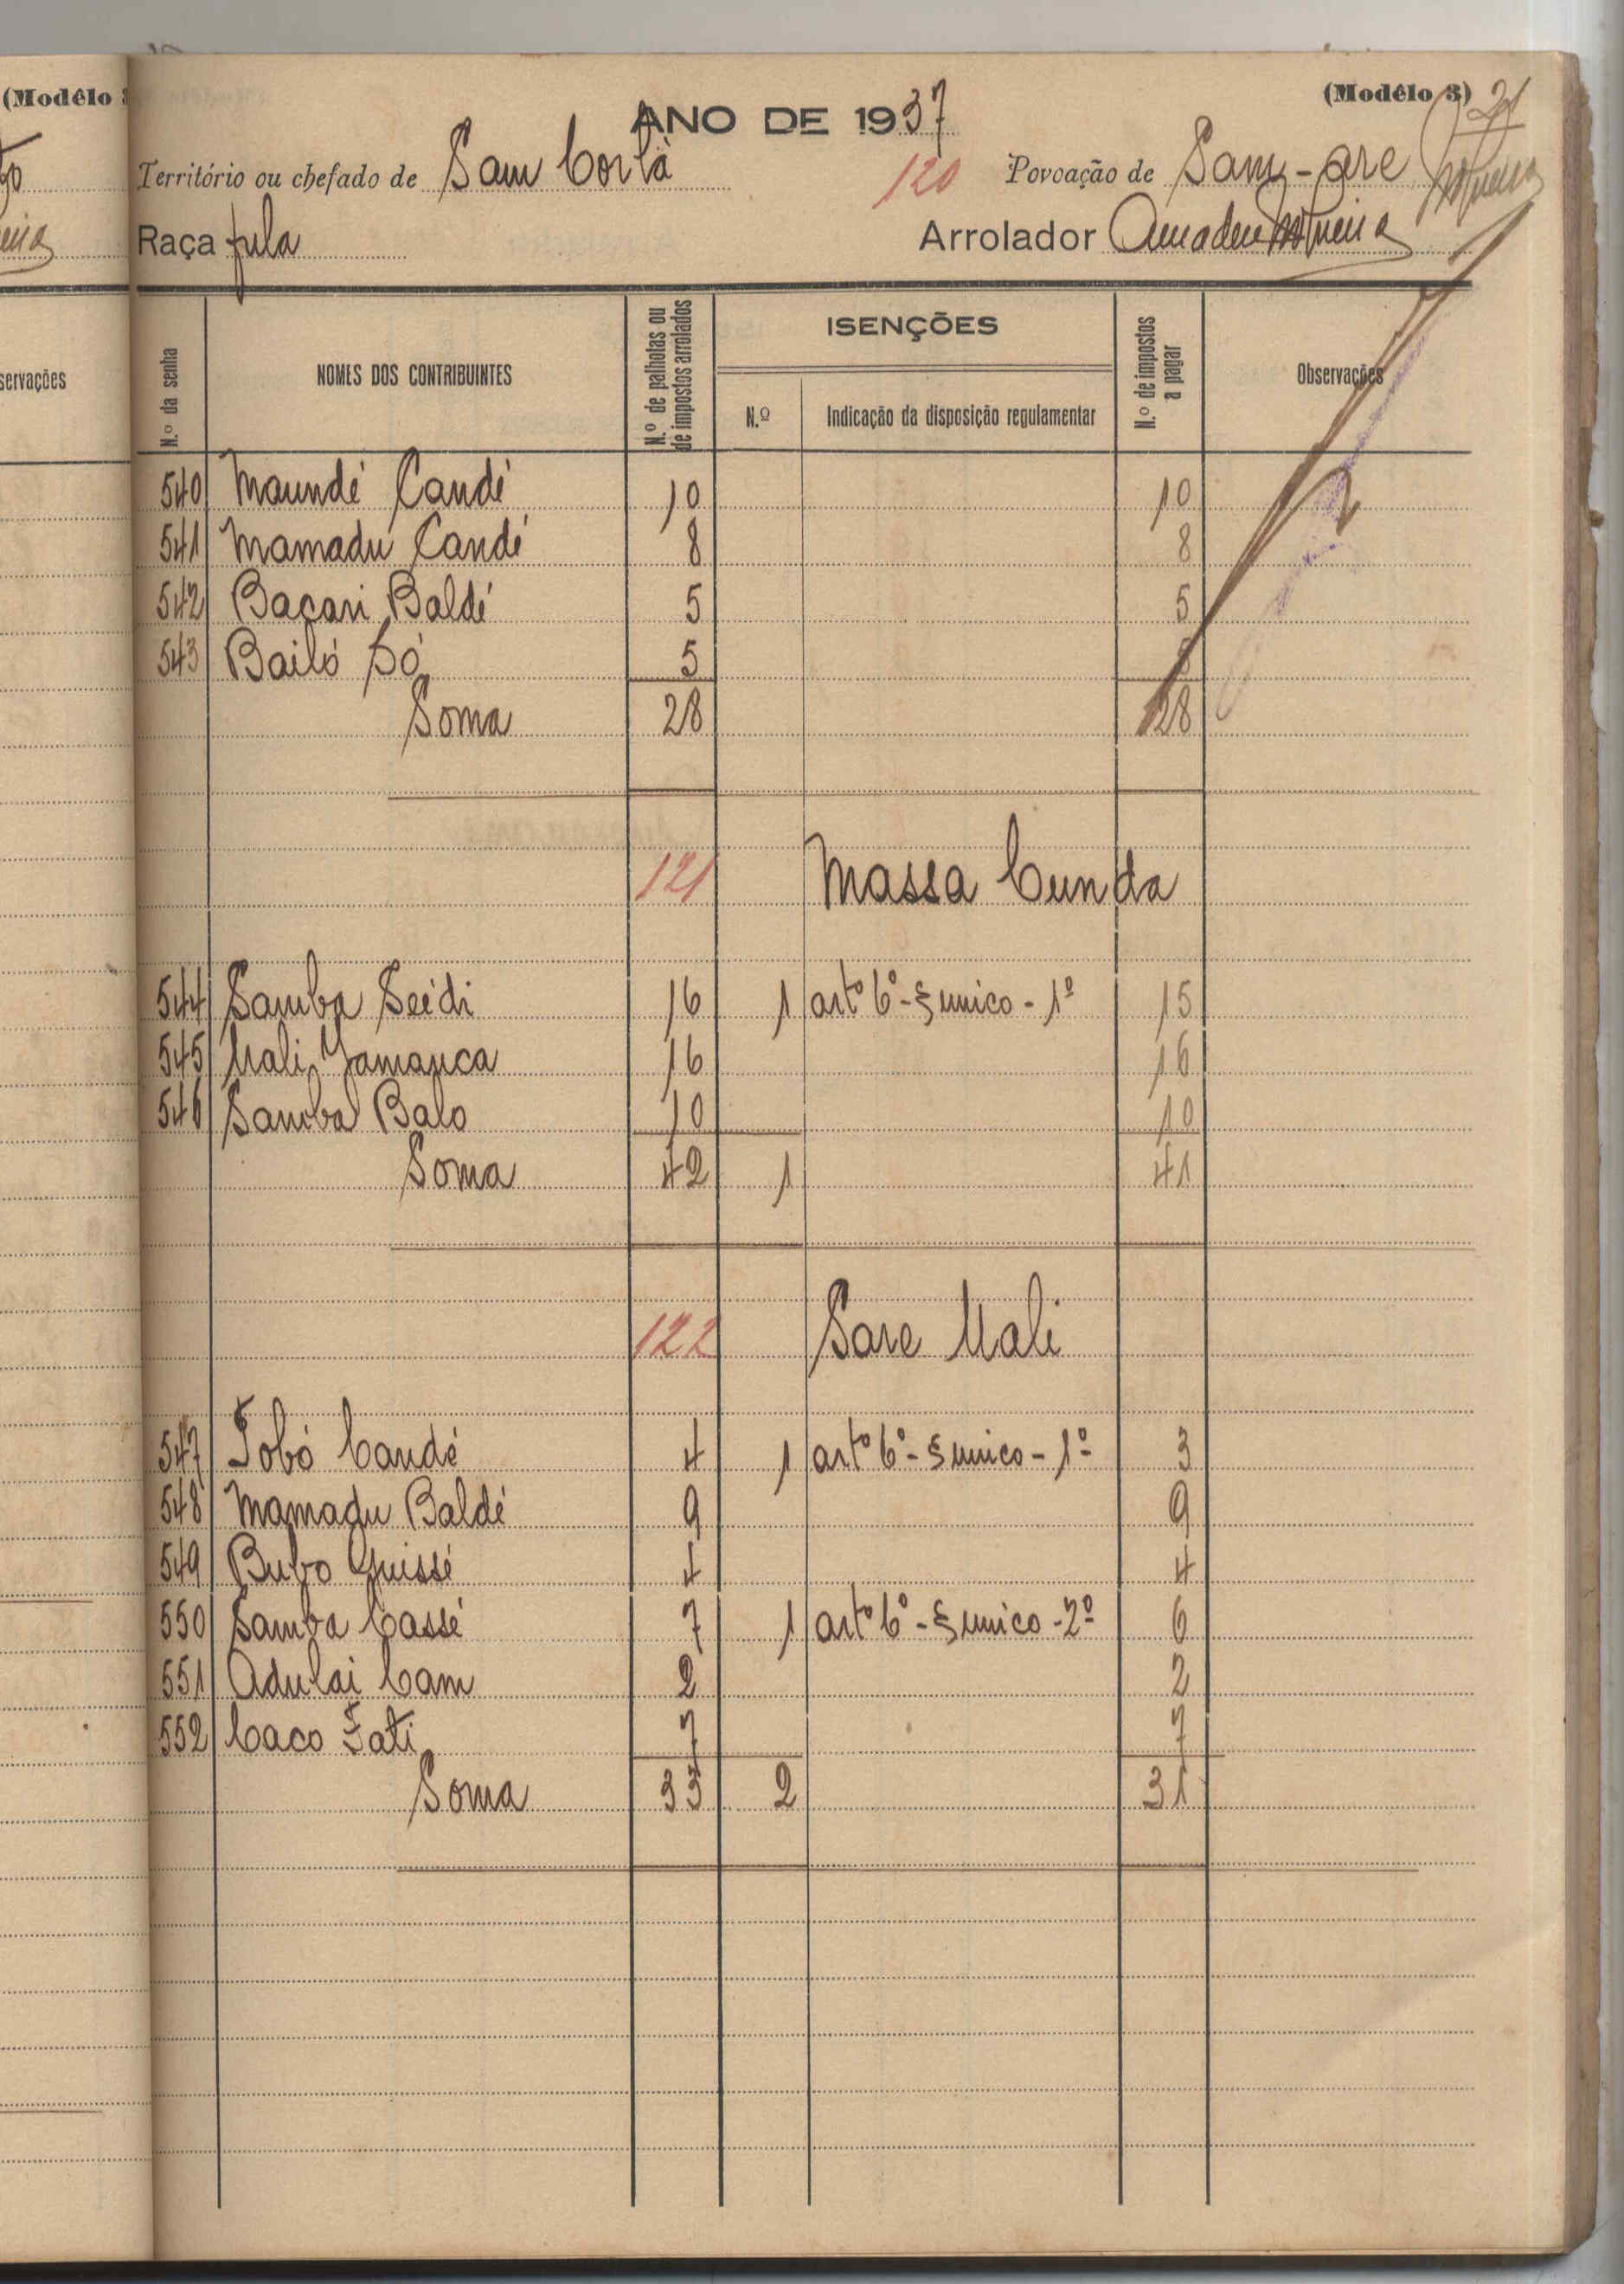 (Modêlo
(Modêlo 3)
21
ANO DE 1937
Território ou chefado de Sam Corlà
120
Povoação de Sam-gre
Raça fula
Arrolador Amadeu
servações
N.º da senha
NOMES DOS CONTRIBUINTES
N.º de palhotas ou de impostos arrolados
ISENÇÕES
N.º
Indicação da disposição regulamentar
N.º de impostos a pagar
Observações
540 Maundé Candé 10 10
541 Mamadu Candé 8 8
542 Bacari Baldé 5 5
543 Bailó Só 5 5
Soma 28 28
121 Massa Cunda
544 Samba Seidi 16 1 artº 6º - § unico - 1º 15
545 Uali Jamanca 16 16
546 Samba Balo 10 10
Soma 42 1 41
122 Sare Uali
547 Jobó Candé 4 1 artº 6º - § unico - 1º 3
548 Mamadu Baldé 9 9
549 Bubo Guissé 4 4
550 Samba Cassé 7 1 artº 6º - § unico - 2º 6
551 Adulai Cam 2 2
552 Caco Fati 7 7
Soma 33 2 31